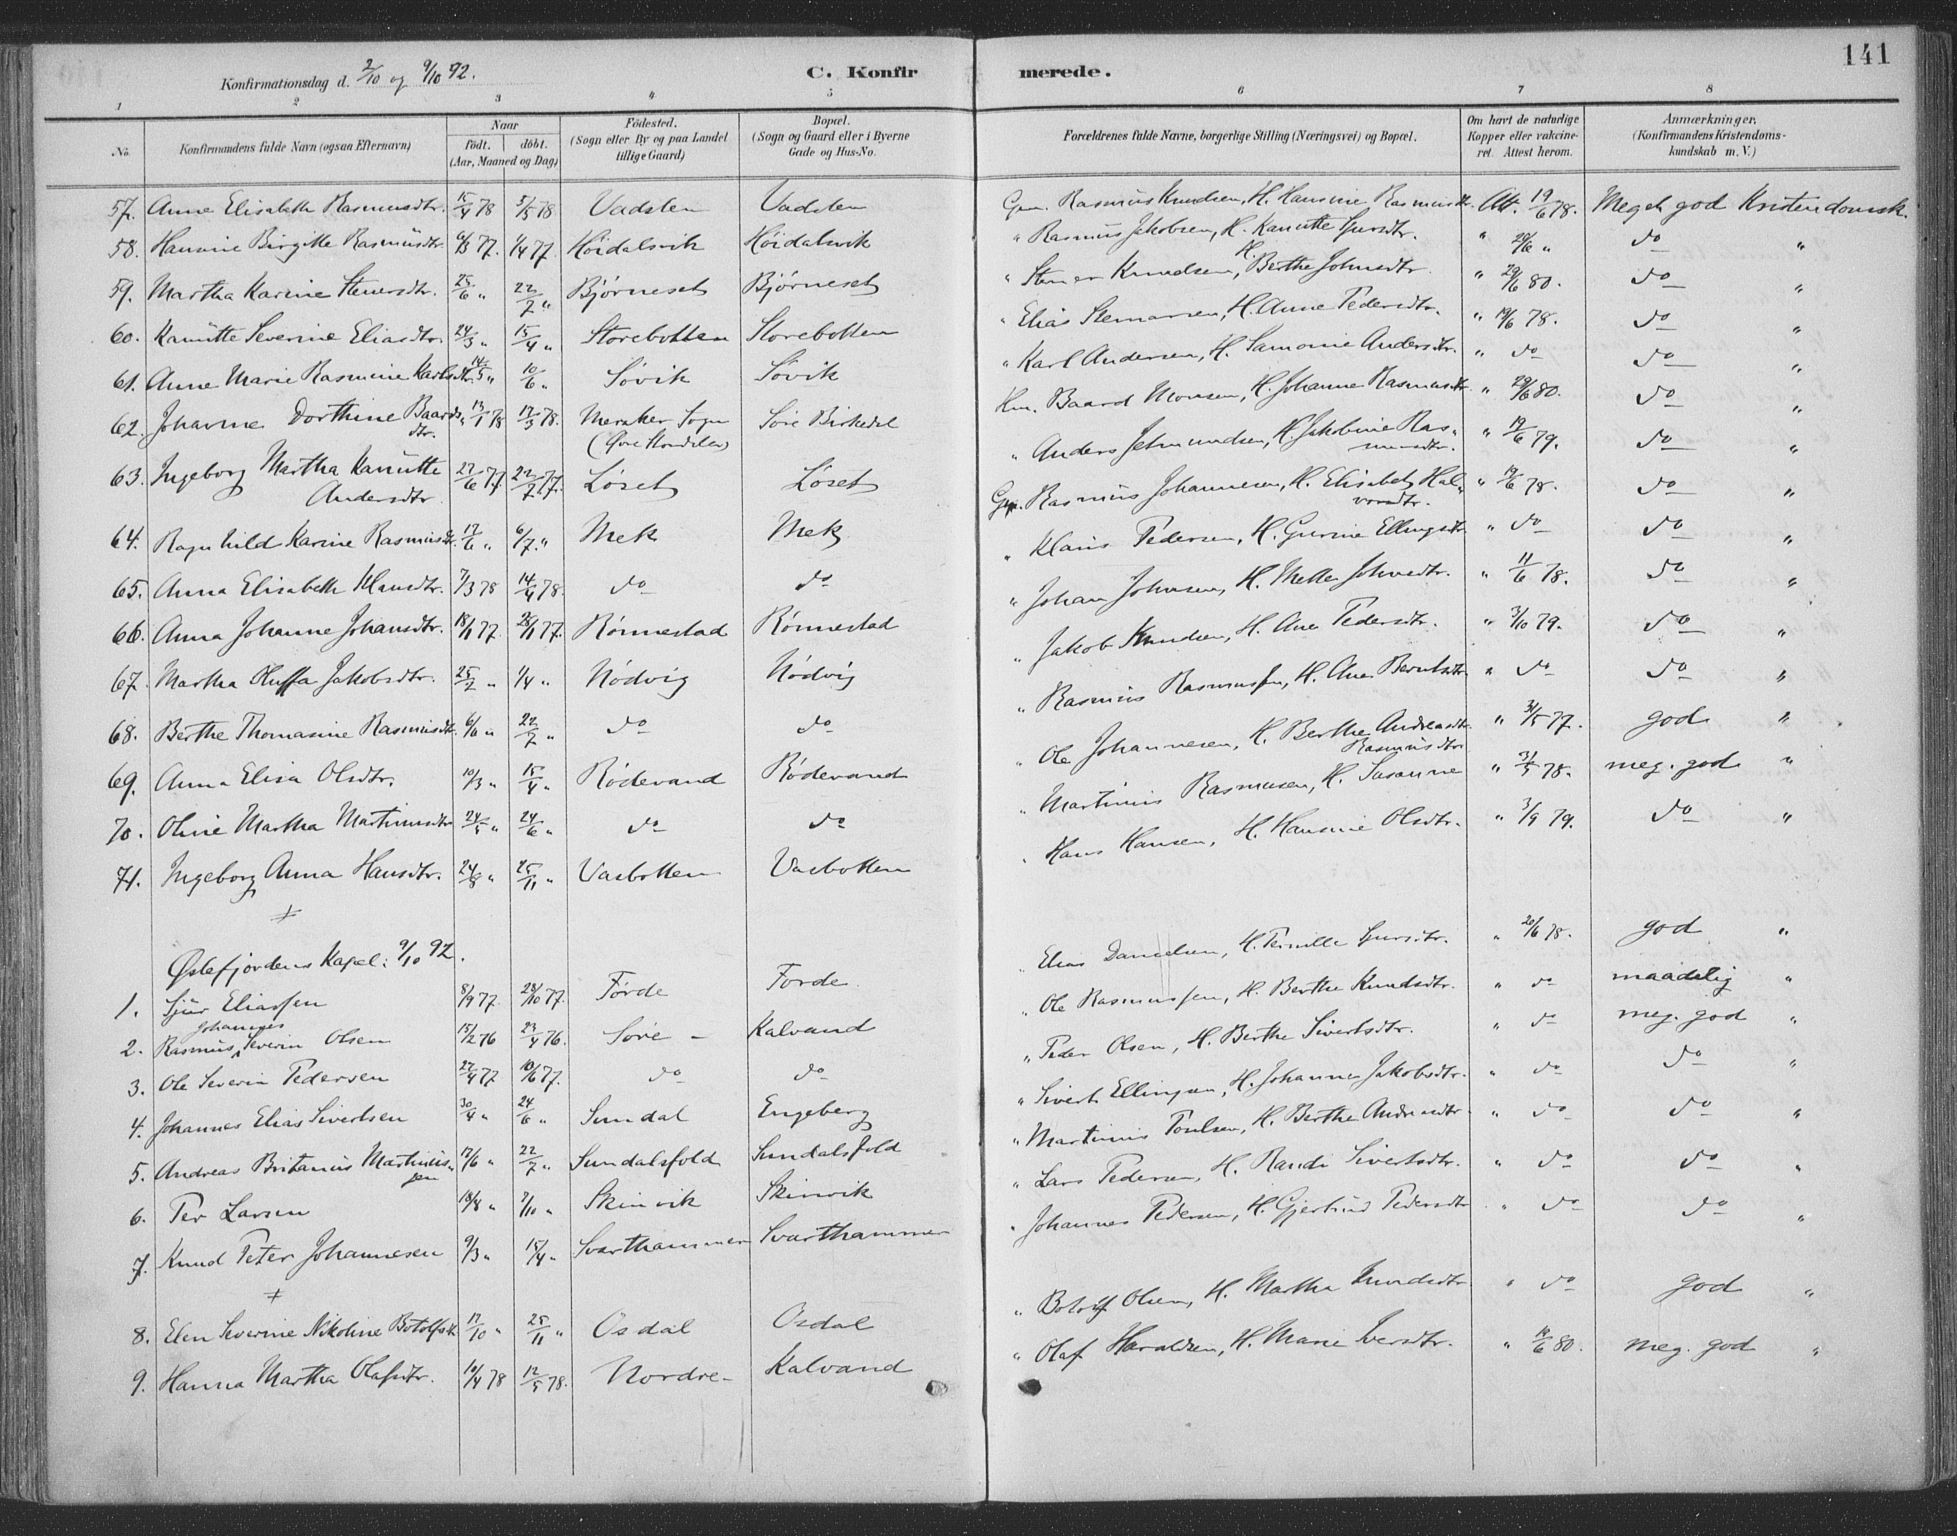 141
Konfirmationsdag d. 2/10 og 9/10 92. C. Konfirmerede.
1 2 3 4 5 6 7 8
No. Konfirmandens fulde Navn (ogsaa Efternavn) Naar Födt. döbt. (Aar, Maaned og Dag) Födested. (Sogn eller By og paa Landet tillige Gaard) Bopæl. (Sogn og Gaard eller i Byerne Gade og Hus-No. Forældrenes fulde Navne, borgerlige Stilling (Næringsvei) og Bopæl. Om havt de naturlige Kopper eller vakcineret. Attest herom. Anmærkninger. (Konfirmandens Kristendomskundskab m. V.)
57. Anne Elisabeth Rasmusdtr. 15/4 78 5/5 78. Vadsten Vadsten Gm. Rasmus Knudsen, H. Hansine Rasmusdtr. Att. 19/6 78. Meget god Kristendomsk.
58. Hansine Birgitte Rasmusdtr. 6/3 77. 1/4 77. Höidalsvik Höidalsvik " Rasmus Jakobsen, H. Kanutte Sjursdtr. " 20/6 " do "
59. Martha Karine Steuersdtr. 25/6 " 22/7 " Björneset Björneset " Knudsen, H. Berthe Johnsdtr. " 29/6 80. do "
60. Kanutte Severine Eliasdtr. 24/3 " 15/4 " Storebotten Storebotten " Elias H. Anne Pedersdtr. " 19/6 78. do "
61. Anne Marie Rasmine Karlsdtr. 14/5 " 10/6 " Sövik Sövik " Karl Andersen, H. Samonie Andersdtr. " do do "
62. Johanne Dorthine Baardsdtr. 13/1 78 17/3 78. Meraker Sogn Söre Birkedal Hm. Baard Monsen, H. Johanne Rasmusdtr. " 29/6 80. do "
63. Ingeborg Martha Kanutte Andersdtr 27/6 77. 22/7 77. Löset Löset " Anders H. Jakobine Rasmusdtr. " 19/6 79. do "
64. Ragnhild Karine Rasmusdtr. 17/6 " 6/7 " Mek Mek Gm. Rasmus Johannesen, H. Elisabet Halvorsdtr. " 19/6 78. do "
65. Anna Elisabeth Klausdtr. 7/3 78 14/4 78. do do " Klaus Pedersen, H. Gurine Ellingsdtr. " do do "
66. Anna Johanne Johansdtr. 18/1 77. 28/1 77. Rönnestad Rönnestad " Johan Johnsen, H. Mette Johnsdtr. " 11/6 78. do "
67. Martha Jakobsdtr. 25/2 " 1/4 " Nödvig Nödvig " Jakob Knudsen, H. Ane Pedersdtr. " 3/10 79. do "
68. Berthe Thomasine Rasmusdtr. 6/6 " 22/7 " do do " Rasmus Rasmussen, H. Ane Berntsdtr. " do do "
69. Anna Elisa Olsdtr. 10/3 " 15/4 " Rödevand Rödevand " Ole Johannesen, H. Berthe Andreasdtr. " 31/5 77. god "
70. Oline Martha Martinusdtr. 24/5 " 24/6 " do do " Martinus Rasmusen, H. Susanne Rasmusdtr. " 31/5 78. meg. god "
71. Ingeborg Anna Hansdtr. 24/8 " 25/11 " Vasbotten Vasbotten " Hans Hansen, H. Hansine Olsdtr. " 3/9 79. do "
Østefjordens Kapel: 9/10 92.
1. Sjur Eliassen 8/9 77. 28/10 77. Förde Förde " Elias Danielsen, H. Pernille Sjursdtr. " 20/6 78. god "
2. Rasmus Johannes Severin Olsen 15/2 76 23/4 76. Söre- Kalvand " Ole Rasmussen, H. Berthe Knudsdtr. " do maadelig "
3. Ole Severin Pedersen 22/4 77 10/6 77. do do " Peder Olsen, H. Berthe Sivertsdtr. " do meg. god "
4. Johannes Elias Sivertsen 30/4 " 24/6 " Sundal Engeberg " Sivert Ellingsen, H. Johanne Jakobsdtr. " do do "
5. Andreas Britanus Martinussen 17/6 " 22/7 " Sundalsfold Sundalsfold " Martinus Poulsen, H. Berthe Andreasdtr. " do do "
6. Per Larsen 18/8 " 7/10 " Skinvik Skinvik " Lars Pedersen, H. Randi Sivertsdtr. " do do "
7. Knud Peter Johannesen 9/3 " 15/4 " Svarthammer Svarthammer " Johannes Pedersen, H. Gjertrud Pedersdtr " do do "
8. Elen Severine Nikoline Botolfsdtr. 17/10 " 25/11 " Osdal Osdal " Botolf Olsen, H. Martha Knudsdtr " do god "
9. Hanna Martha Olafsdtr. 10/4 78 12/5 78. Nordre- Kalvand " Olaf Haraldsen, H. Marie Iversdtr. " 14/6 80. meg. god "